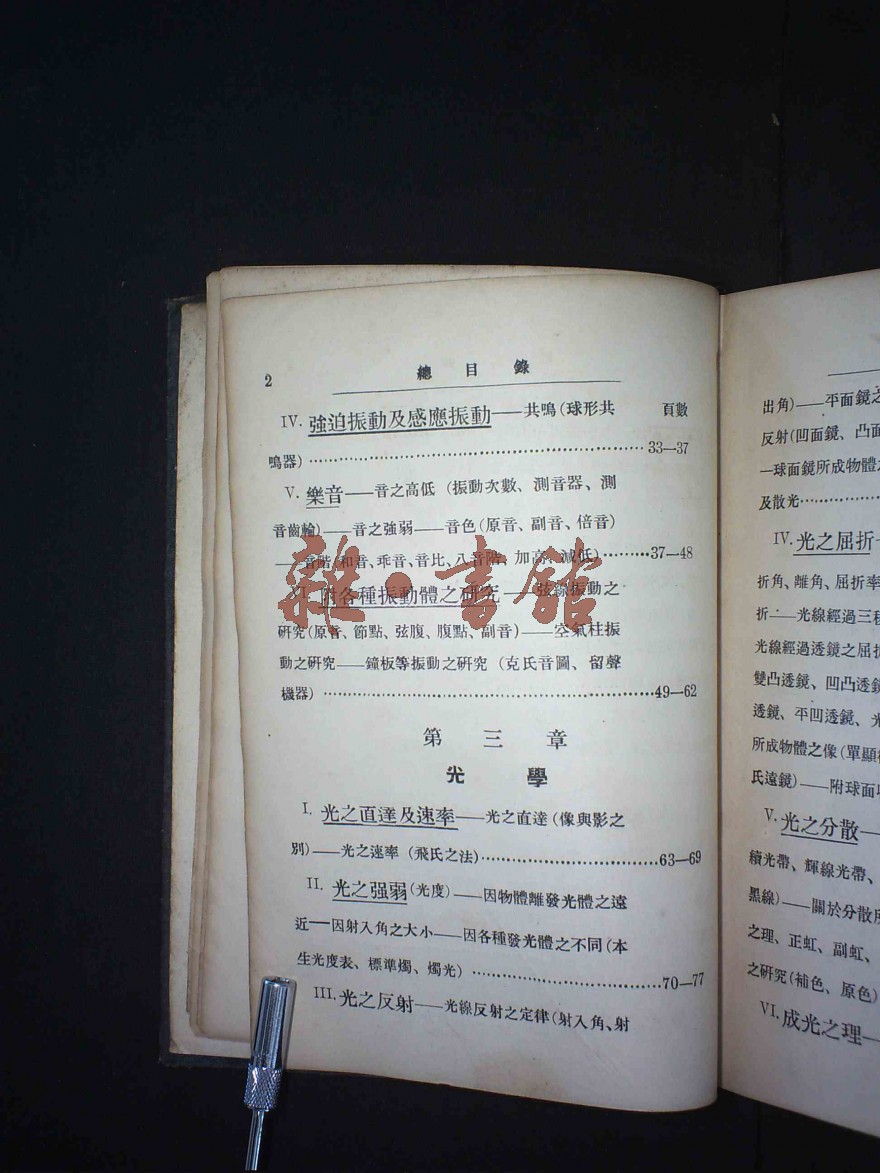 2
總目錄
IV. 強迫振動及感應振動——共鳴(球形共 頁數
鳴器)……33—37
V. 樂音——音之高低 (振動次數、測音器、測
音齒輪)——音之強弱——音色(原音、副音、倍音)
——音階(和音、乖音、音比、八音階、加高、減低)……37—48
XI. 附各種振動體之研究——弦線振動之
研究(原音、節點、弦腹、腹點、副音)——空氣柱振
動之研究——鐘板等振動之研究 (克氏音圖、留聲
機器)……49—62
第三章
光學
I. 光之直達及速率——光之直達(像與影之
別)——光之速率 (飛氏之法)……63—69
II. 光之强弱(光度)——因物體離發光體之遠
近——因射入角之大小——因各種發光體之不同(本
生光度表、標準燭、燭光)……70—77
III. 光之反射——光線反射之定律(射入角、射
雜·書館
出角)——平面鏡之
反射(凹面鏡、凸面
—球面鏡所成物體
及散光……
IV. 光之屈折
折角、離角、屈折率
折——光線經過三稜
光線經過透鏡之屈折
雙凸透鏡、凹凸透鏡
透鏡、平凹透鏡、光
所成物體之像(單顯微
氏遠鏡)——附球面收
V. 光之分散—
續光帶、輝線光帶、
黑線)——關於分散所
之理、正虹、副虹、
之研究(補色、原色)
VI. 成光之理—